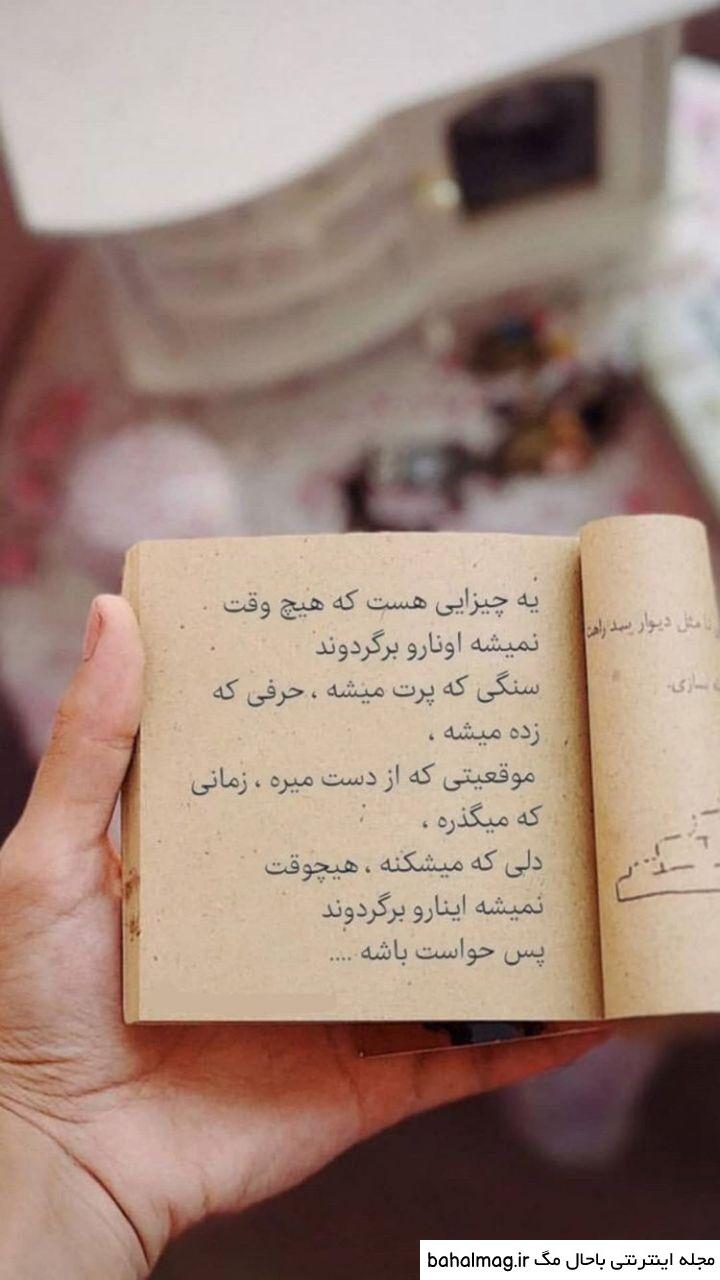 یه چیزایی هست که هیچ وقت
نمیشه اونارو برگردوند
سنگی که پرت میشه ، حرفی که
زده میشه ،
موقعیتی که از دست میره ، زمانی
که میگذره ،
دلی که میشکنه ، هیچوقت
نمیشه اینارو برگردوند
پس حواست باشه ....
مثل دیوار سد راهت
بسازی.
مجله اینترنتی باحال مگ bahalmag.ir